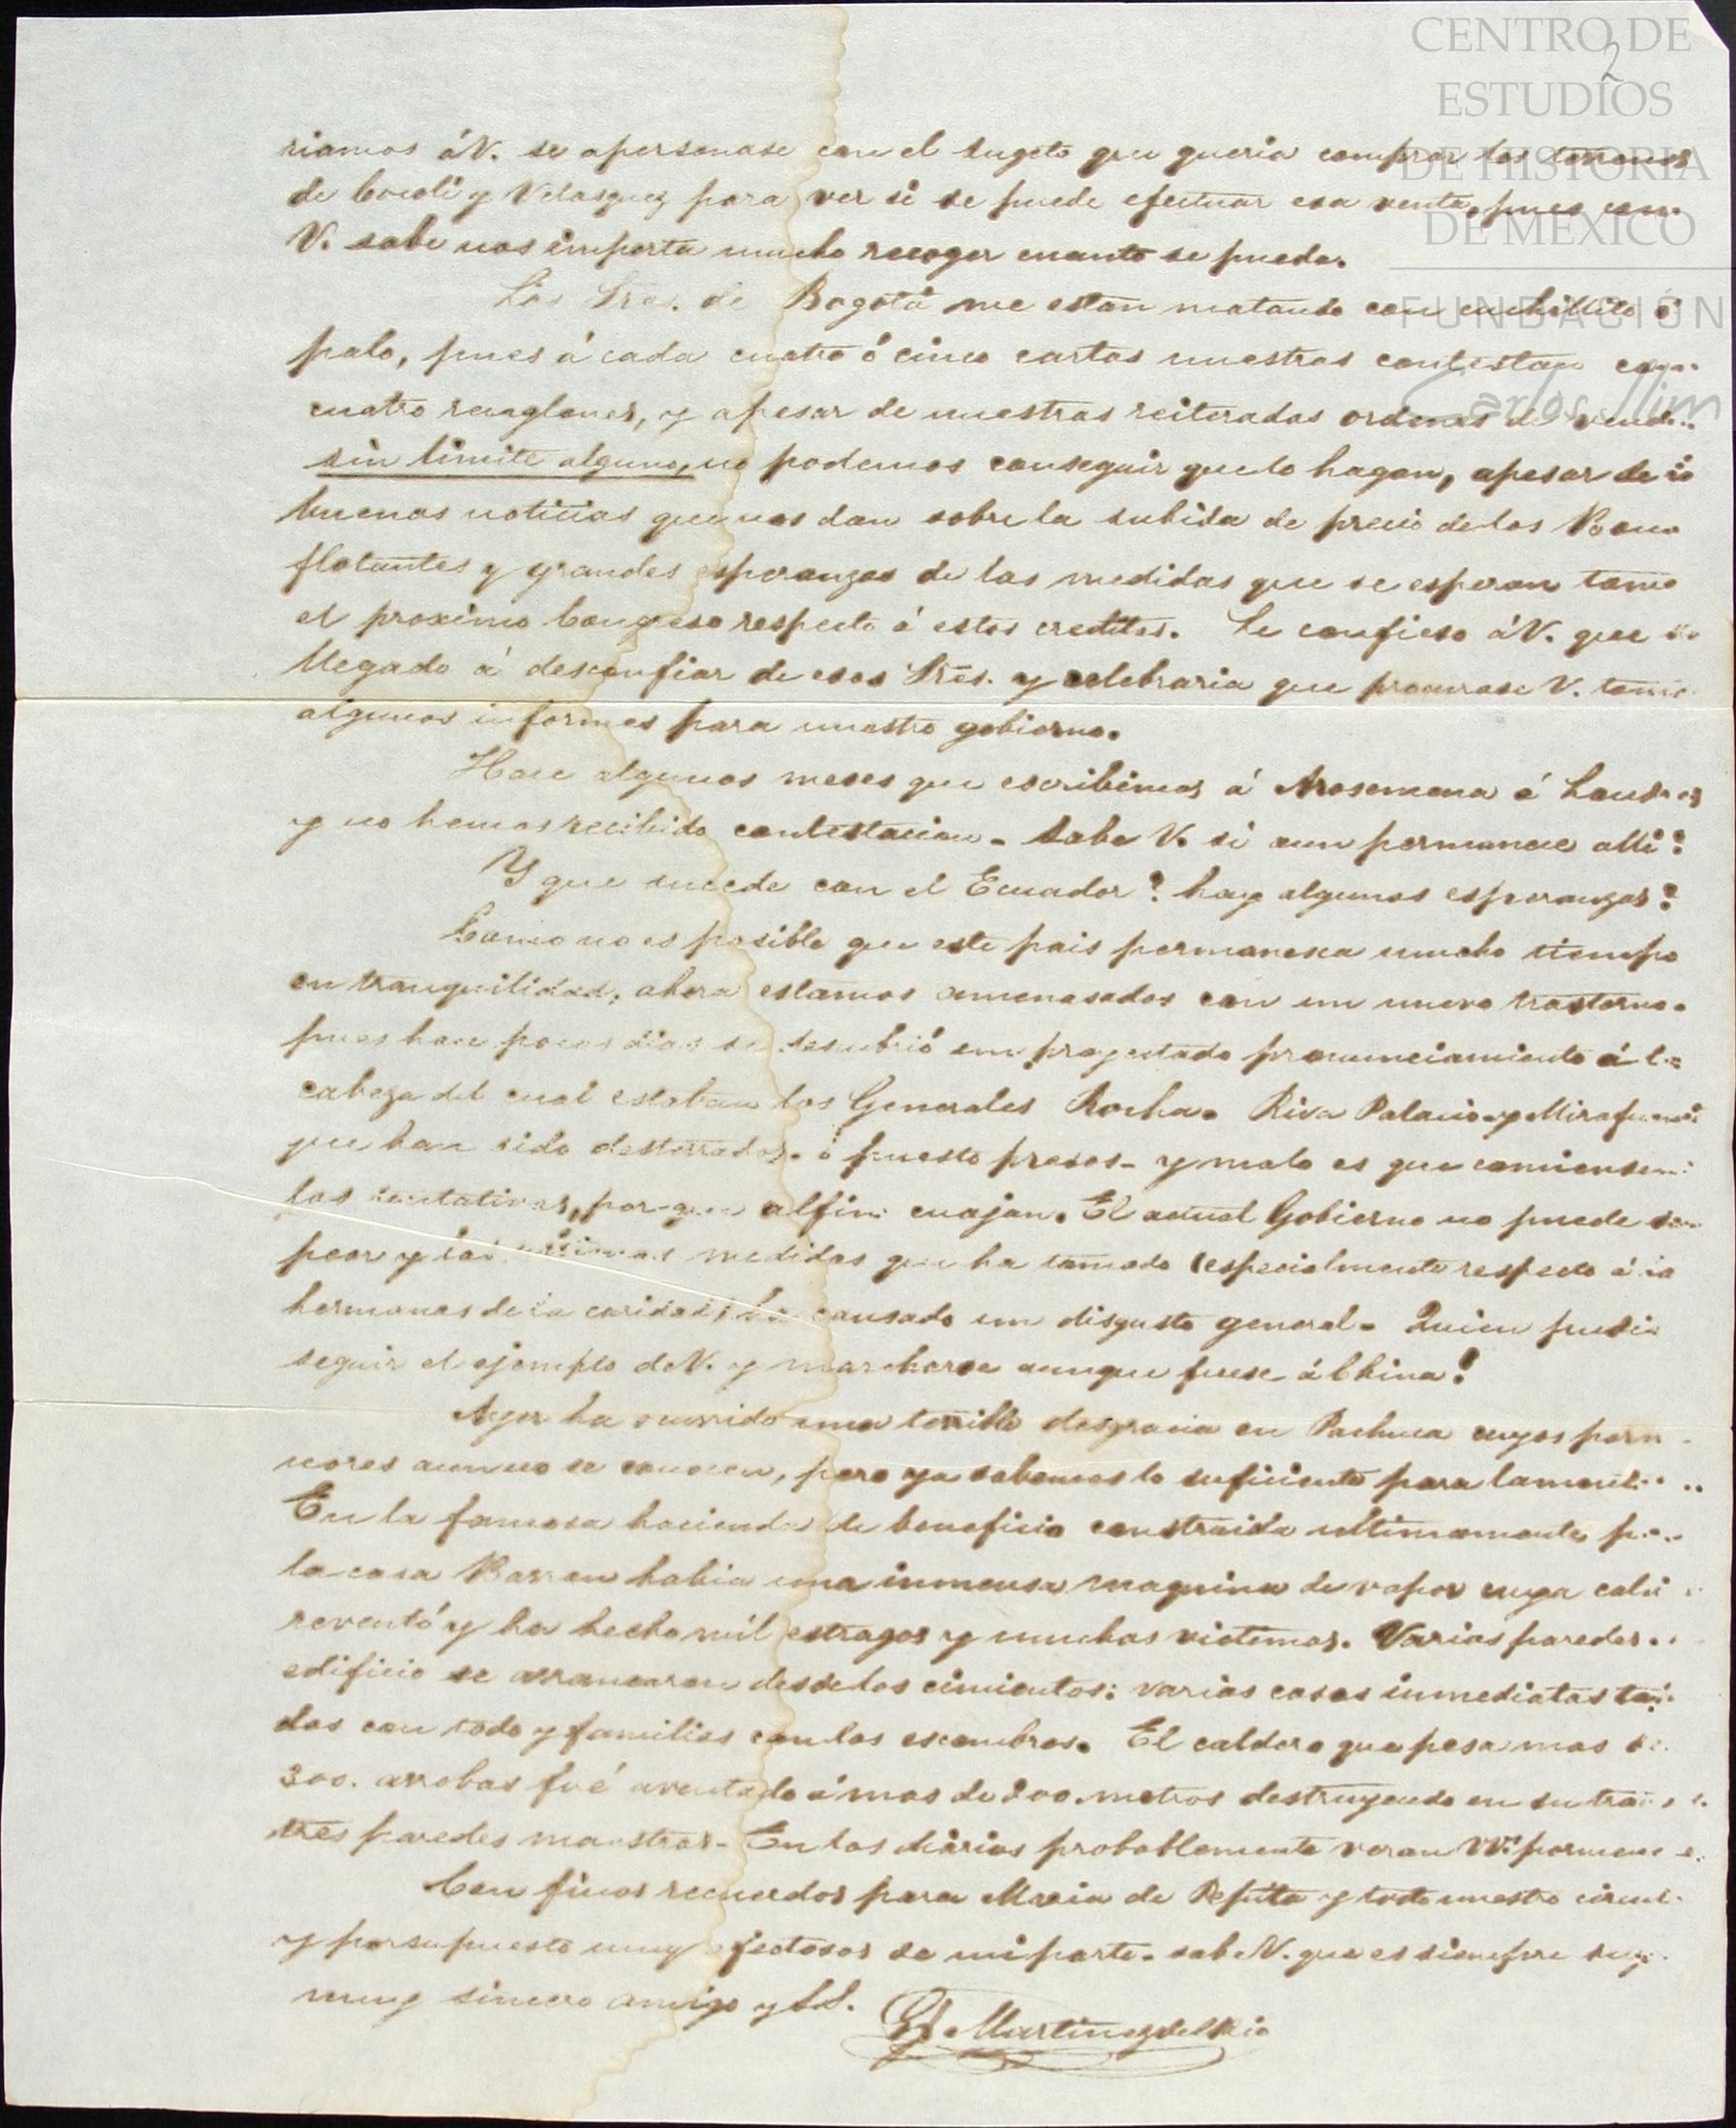 CENTRO DE
ESTUDIOS
DE HISTORIA
DE MEXICO
FUNDACIÓN
Carlos Slim
2
riamos á V. se apersonase con el sugeto que queria comprar los terrenos
de Cocoli y Velasquez para ver si se puede efectuar esa venta, pues com
V. sabe nos importa mucho recoger cuanto se pueda.
Los Sres. de Bogotá me estan matando con cuchillito é
palo, pues á cada cuatro ó cinco cartas nuestras contestan con
cuatro renglones, y apesar de nuestras reiteradas ordenes de vende
sin limite alguno, no podemos conseguir que lo hagan, apesar de
buenas noticias que nos dan sobre la subida de precio de los Bono
flotantes y grandes esperanzas de las medidas que se esperan tome
el proximo Congreso respecto á estos creditos. Le confieso á V. que
llegado á desconfiar de esos Sres. y celebraria que procurase V. tome
algunos informes para nuestro gobierno.
Hace algunos meses que escribimos á Arosemena á Londres
y no hemos recibido contestacion - Sabe V. si aun permanece alli?
Y que sucede con el Ecuador? hay algunas esperanzas?
Como no es posible que este pais permanesca mucho tiempo
en tranquilidad, ahora estamos amenasados con un nuevo trastorno.
pues hace pocos dias se descubrió un proyectado pronunciamiento á l
cabeza del cual estaban los Generales Rocha. Riva Palacio y Mirafuen
que han sido desterrados. ó puesto presos - y malo es que comiensen
las tentativas, porque al fin cuajan. El actual Gobierno no puede ser
peor y las ultimas medidas que ha tomado (especialmente respecto á
hermanas de la caridad) ha causado un disgusto general - Quien pudie
seguir el ejemplo de V. y marcharse aunque fuese á China!
Ayer ha ocurrido una terrible desgracia en Pachuca cuyos porm
nores aun no se conocen, pero ya sabemos lo suficiente para lament
En la famosa hacienda de beneficio construida ultimamente po
la casa Barron habia una inmensa maquina de vapor cuya cald
reventó y ha hecho mil estragos y muchas victimas. Varias paredes
edificio se arrancaron desde los cimientos: varias casas inmediatas
das con todo y familias con los escombros. El caldero que pesa mas de
300. arrobas fué aventado á mas de 200. metros destruyendo en su tra
tres paredes maestras - En los diarios probablemente veran VV. pormen
Con finos recuerdos para Maria de Pepita y todo nuestro circul
y por supuesto muy afectosos de mi parte. sabe V. que es siempre suyo
muy sincero amigo y S.S.
G. Martinez del Rio